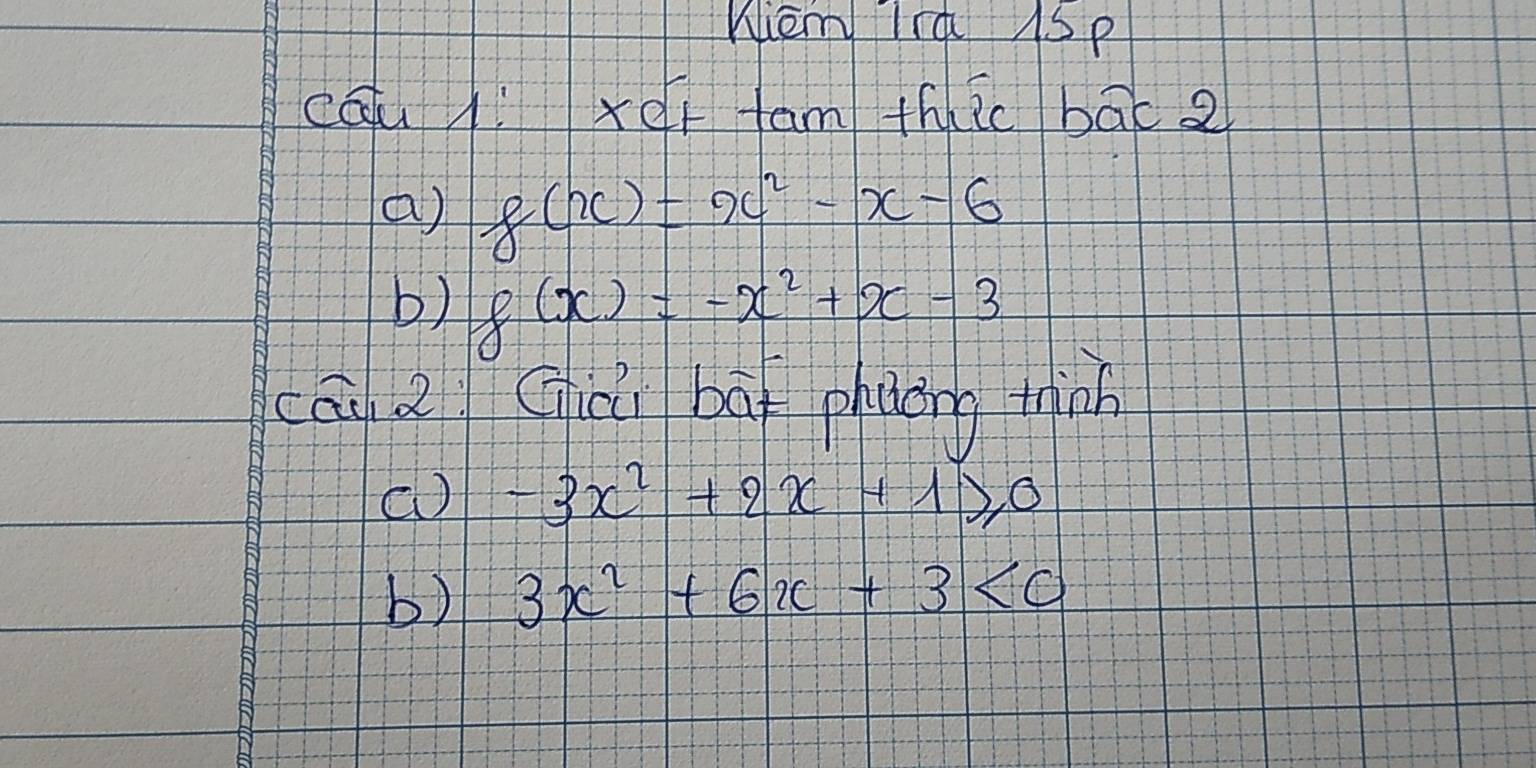 Kiểm Tra 15p
câu 1: xét tam thức bậc 2
a) f(x) = x² - x - 6
b) f(x) = -x² + x - 3
câu 2: Giải bất phương trình
a) -3x² + 2x + 1 ⩾ 0
b) 3x² + 6x + 3 < 0